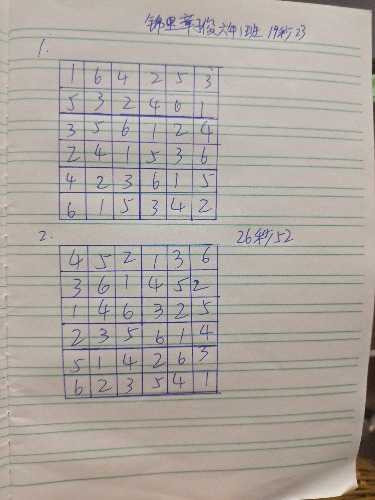 锦里章子俊六年1班 19秒23
1.
1 6 4 2 5 3
5 3 2 4 6 1
3 5 6 1 2 4
2 4 1 5 3 6
4 2 3 6 1 5
6 1 5 3 4 2
2. 26秒52
4 5 2 1 3 6
3 6 1 4 5 2
1 4 6 3 2 5
2 3 5 6 1 4
5 1 4 2 6 3
6 2 3 5 4 1